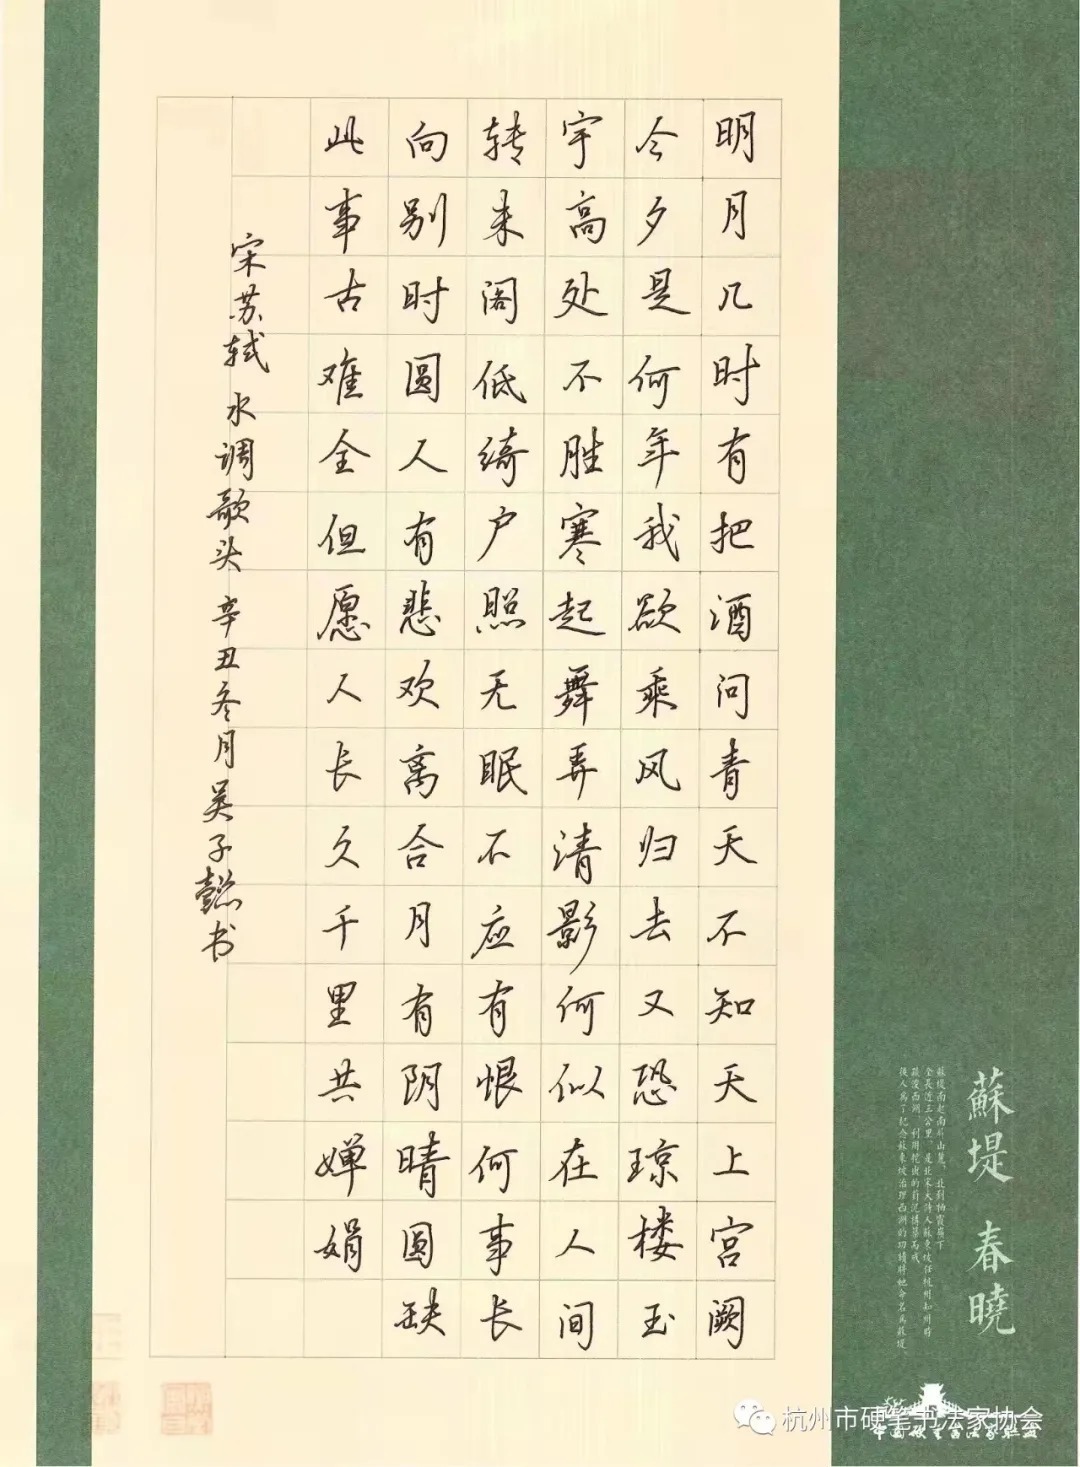 蘇堤 春曉
蘇堤南起南屏山麓，北到栖霞嶺下
全長近三公里，是北宋大詩人蘇東坡任杭州知州時
疏浚西湖，利用挖出的葑泥構築而成
後人爲了紀念蘇東坡治理西湖的功績將她命名爲蘇堤。
明月几时有把酒问青天不知天上宫阙
今夕是何年我欲乘风归去又恐琼楼玉
宇高处不胜寒起舞弄清影何似在人间
转来阁低绮户照无眠不应有恨何事长
向别时圆人有悲欢离合月有阴晴圆缺
此事古难全但愿人长久千里共婵娟
宋苏轼 水调歌头 辛丑冬月吴子懿书
杭州市硬笔书法家协会